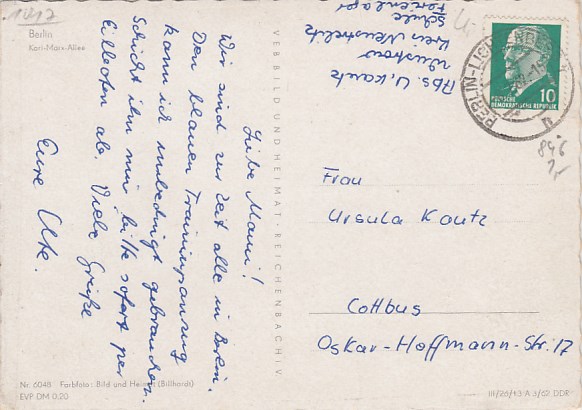 1017
Berlin
Karl-Marx-Allee
Liebe Mami!
Wir sind zur Zeit alle in Berlin.
Den blauen Trainingsanzug
kann ich unbedingt gebrauchen.
Schickt ihn mir bitte sofort per
Eilboten ab. Viele Grüße
Eure Ute.
Nr. 6048 Farbfoto: Bild und Heimat (Billhardt)
EVP DM 0,20
VEB BILD UND HEIMAT · REICHENBACH I. V.
Abs. U. Kautz
Wustrow
Kreis Neustrelitz
Schule
Ferienlager
BERLIN-LICHTENBERG
10
DEUTSCHE
DEMOKRATISCHE REPUBLIK
846
Frau
Ursula Kautz
Cottbus
Oskar-Hoffmann-Str. 17
III/26/13 A 3/62 DDR